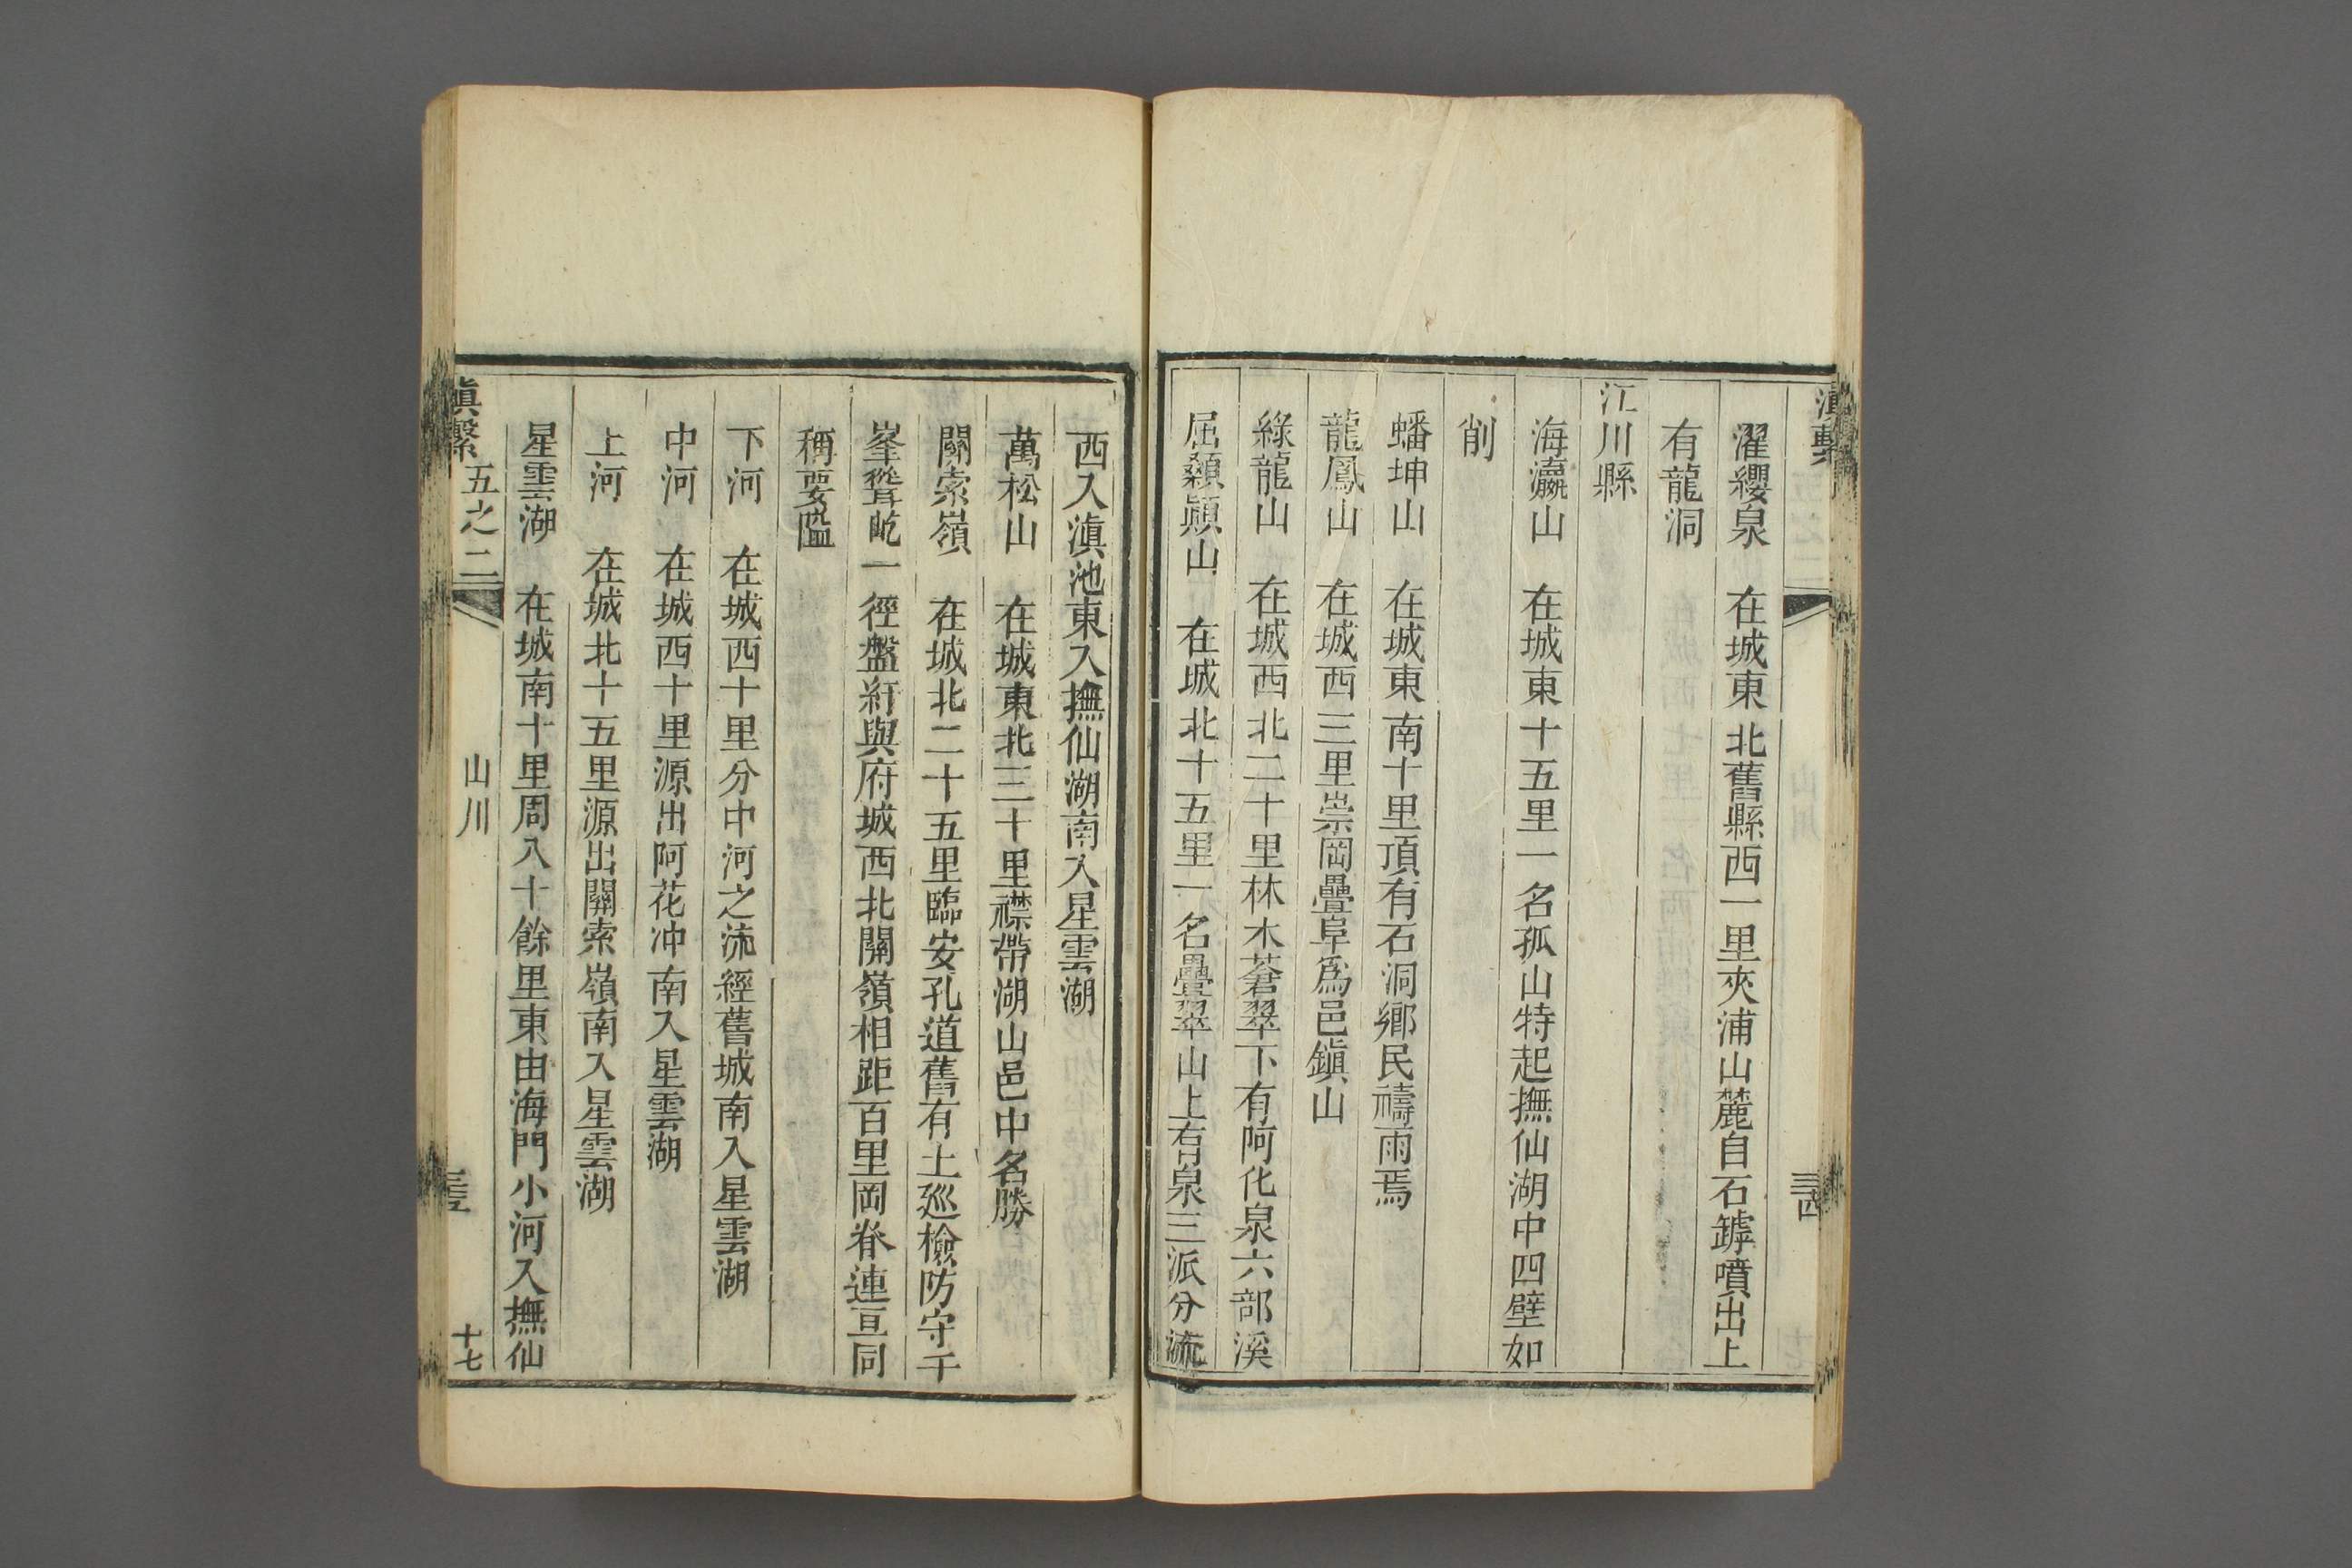 滇繫
三四
濯纓泉　在城東北舊縣西一里夾浦山麓自石罅噴出上
有龍洞
江川縣
海瀛山　在城東十五里一名孤山特起撫仙湖中四壁如
削
蟠坤山　在城東南十里頂有石洞鄉民禱雨焉
龍鳳山　在城西三里崇岡疊阜爲邑鎮山
綠龍山　在城西北二十里林木蒼翠下有阿化泉六部溪
屈顙巔山　在城北十五里一名疊翠山上有泉三派分流
西入滇池東入撫仙湖南入星雲湖
萬松山　在城東北三十里襟帶湖山邑中名勝
關索嶺　在城北二十五里臨安孔道舊有土廵檢防守千
峯聳屹一徑盤紆與府城西北關嶺相距百里岡脊連亘同
稱要隘
下河　在城西十里分中河之流經舊城南入星雲湖
中河　在城西十里源出阿花冲南入星雲湖
上河　在城北十五里源出關索嶺南入星雲湖
星雲湖　在城南十里周八十餘里東由海門小河入撫仙
滇繫　五之二　山川　三五　十七